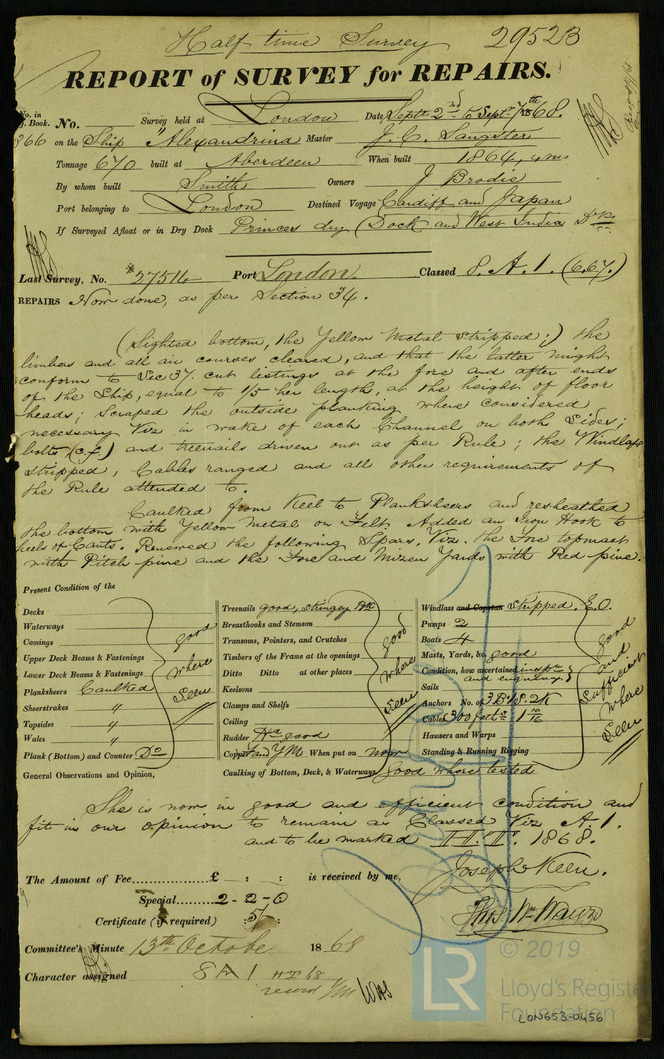 Half time Survey 29523
REPORT of SURVEY for REPAIRS.
No. in
Book. No. Survey held at London Date, Septr 2nd to Septr 7th 1868.
366 on the Ship "Alexandrina Master J. C. Sangster
Tonnage 670 built at Aberdeen When built 1864,
By whom built Smith Owners J Brodie
Port belonging to London Destined Voyage Cardiff and Japan
If Surveyed Afloat or in Dry Dock Princes dry Dock and West India Do
Last Survey, No. 27514 Port London Classed 8. A. 1. (6.67.)
REPAIRS Now done, as per Section 34.
(Sighted bottom, the Yellow Metal stripped;) the
limbers and all air courses cleared, and that the latter might
conform to Sec 37. cut listings at the fore and after ends
of the Ship, equal to 1/5 her length, at the height of floor
heads; scraped the outside planking where considered
necessary Viz in wake of each Channel on both sides;
bolts (c.f) and treenails driven out as per Rule; the Windlass
stripped, Cables ranged and all other requirements of
the Rule attended to.
Caulked from Keel to Planksheers and resheathed
the bottom with Yellow Metal on Felt. Added an Iron Hook to
heels of Cants. Renewed the following Spars, Viz. the Fore topmast
with Pitch pine and the Fore and Mizen Yards with Red pine.
Present Condition of the
Decks
Waterways
Comings
Upper Deck Beams & Fastenings
Lower Deck Beams & Fastenings
Planksheers Caulked
Sheerstrakes "
Topsides "
Wales "
Plank (Bottom) and Counter Do
good where seen
Treenails good, stringey
Breasthooks and Stemson
Transoms, Pointers, and Crutches
Timbers of the Frame at the openings
Ditto Ditto at other places
Keelsons
Clamps and Shelfs
Ceiling
Rudder good
Copper and YM When put on now
Caulking of Bottom, Deck, & Waterways Good where tested
good where seen
Windlass and Capstan stripped, E.O.
Pumps 2
Boats 4
Masts, Yards, &c. good
Condition, how ascertained inspn
and enquiry
Sails
Anchors No. of 3B. 1S. 2K
Cables 300 faths 1
Hawsers and Warps
Standing & Running Rigging
good and sufficient where seen
General Observations and Opinion,
She is now in good and efficient condition and
fit in our opinion to remain as Classed Viz A. 1.
and to be marked H. T. 1868.
The Amount of Fee £ : : is received by me, Joseph Keen.
Special 2-2-0
Certificate (if required) : 5/ :
Committee's Minute 13th October 1868
Character assigned 8 A 1 HT 68
© 2019
LR
Lloyd's Register
Foundation
LON653-0456